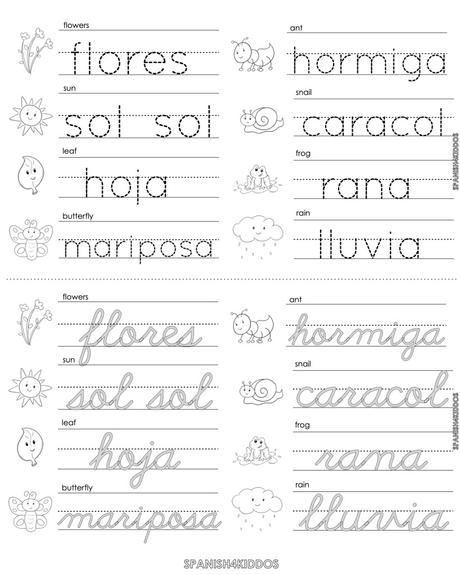 flowers
flores
sun
sol sol
leaf
hoja
butterfly
mariposa
ant
hormiga
snail
caracol
frog
rana
rain
lluvia
SPANISH4KIDDOS
flowers
flores
sun
sol sol
leaf
hoja
butterfly
mariposa
ant
hormiga
snail
caracol
frog
rana
rain
lluvia
SPANISH4KIDDOS
SPANISH4KIDDOS